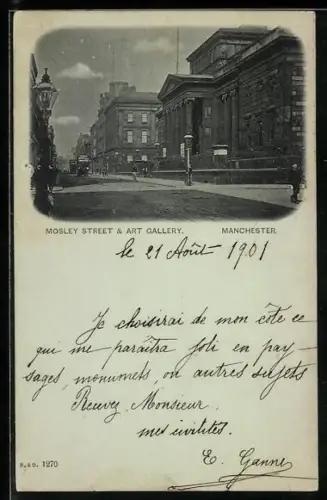 MOSLEY STREET & ART GALLERY. MANCHESTER.
le 21 Août 1901
Je choisirai de mon côte ce
qui me paraîtra joli en pay-
sages, monumets ou autres sujets
Recevez, Monsieur,
mes civilités.
E. Ganne
1270